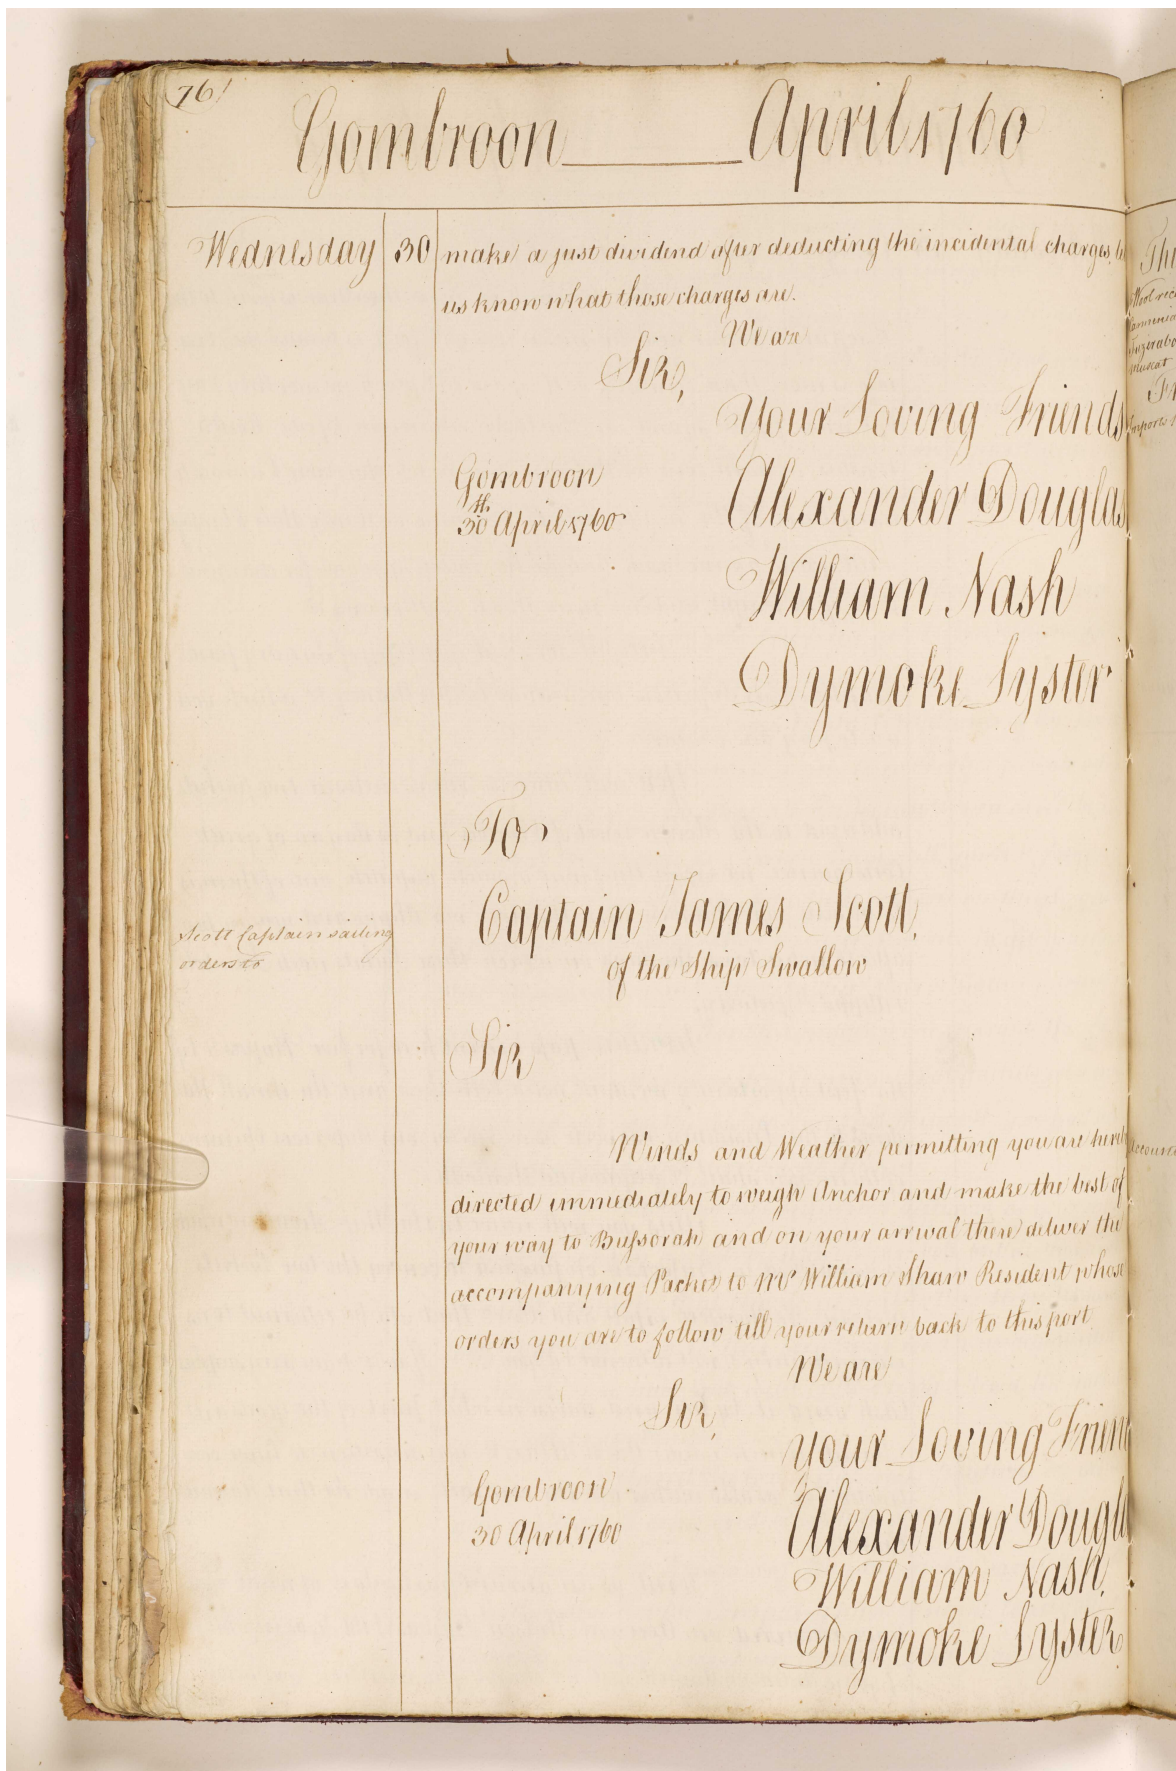 76
Gombroon April 1760
Wednesday 30 make a just dividend after deducting the incidental charges,
us know what those charges are.
We are
Sir,
Your Loving Friends
Gombroon
30th April 1760
Alexander Douglas
William Nash
Dymoke Lyster
To
Captain James Scott,
of the Ship Swallow
Scott Captain sailing
orders to
Sir
Winds and Weather permitting you are
directed immediately to weigh Anchor and make the best of
your way to Bussorah and on your arrival there deliver the
accompanying Packet to Mr William Shaw Resident whose
orders you are to follow till your return back to this port.
We are
Sir,
your Loving
Gombroon
30 April 1760
Alexander
William Nash,
Dymoke Lyster
Muscat